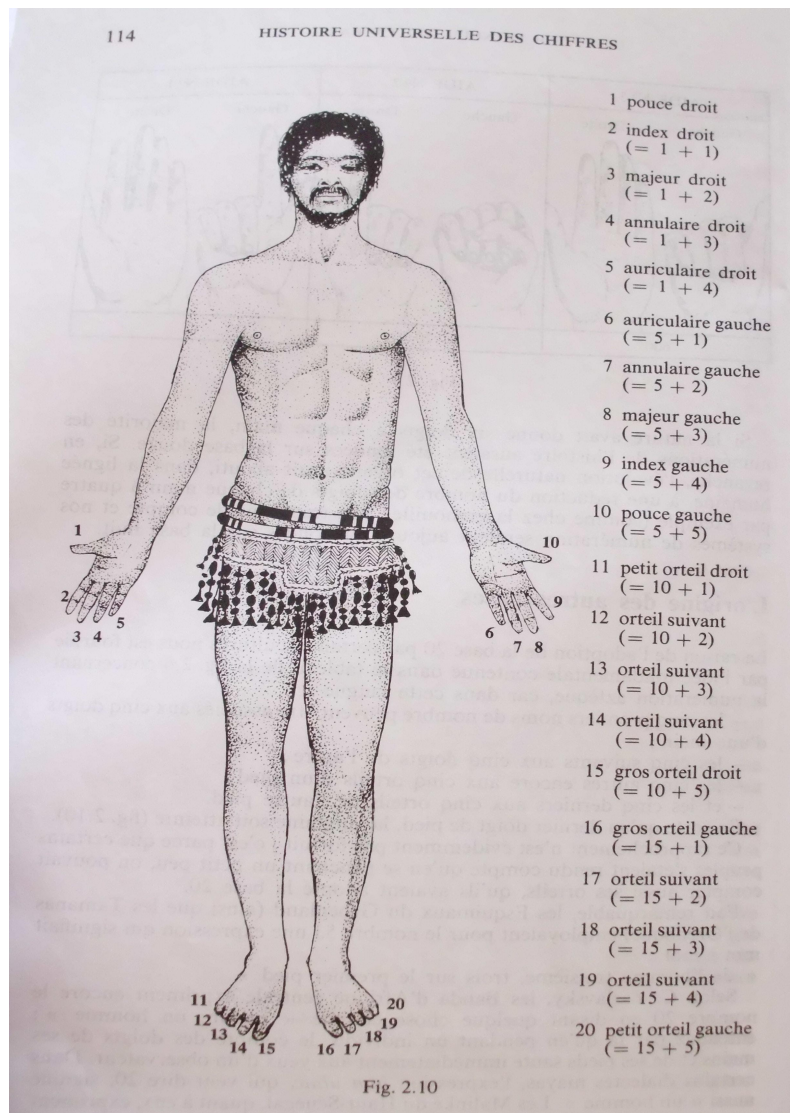 114
HISTOIRE UNIVERSELLE DES CHIFFRES
1 pouce droit
2 index droit
(= 1 + 1)
3 majeur droit
(= 1 + 2)
4 annulaire droit
(= 1 + 3)
5 auriculaire droit
(= 1 + 4)
6 auriculaire gauche
(= 5 + 1)
7 annulaire gauche
(= 5 + 2)
8 majeur gauche
(= 5 + 3)
9 index gauche
(= 5 + 4)
10 pouce gauche
(= 5 + 5)
11 petit orteil droit
(= 10 + 1)
12 orteil suivant
(= 10 + 2)
13 orteil suivant
(= 10 + 3)
14 orteil suivant
(= 10 + 4)
15 gros orteil droit
(= 10 + 5)
16 gros orteil gauche
(= 15 + 1)
17 orteil suivant
(= 15 + 2)
18 orteil suivant
(= 15 + 3)
19 orteil suivant
(= 15 + 4)
20 petit orteil gauche
(= 15 + 5)
1
2
3 4
5
10
9
6
7 8
11
12
13
14 15
20
19
18
16 17
Fig. 2.10